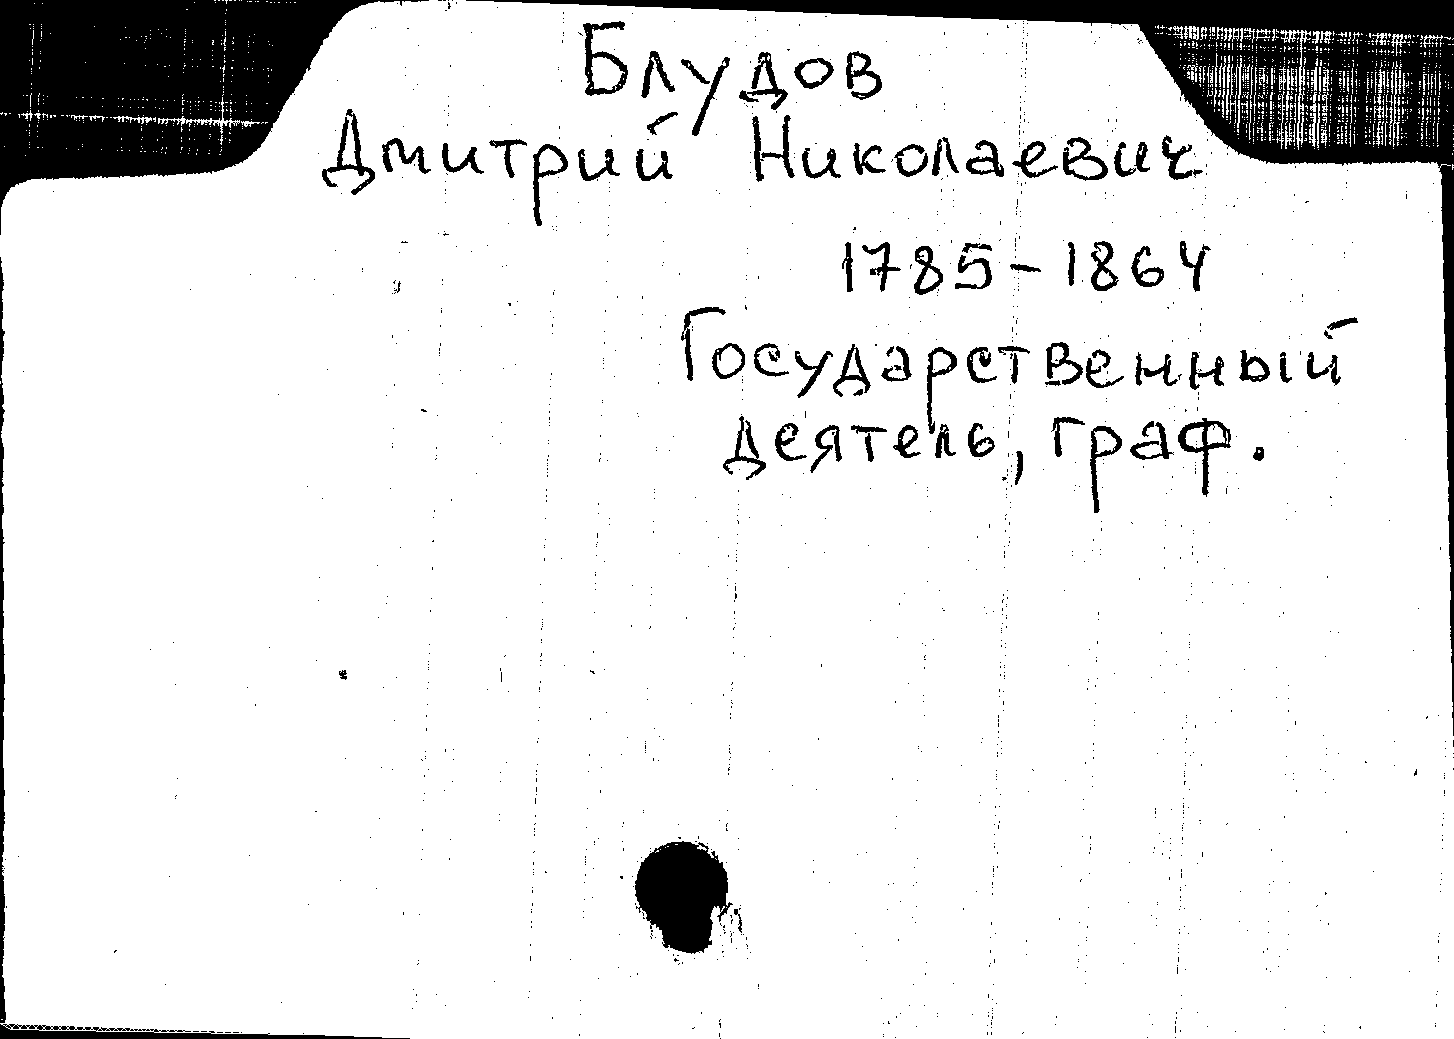 Блудов
Дмитрий Николаевич
1785-1864
Государственный
деятель, граф.